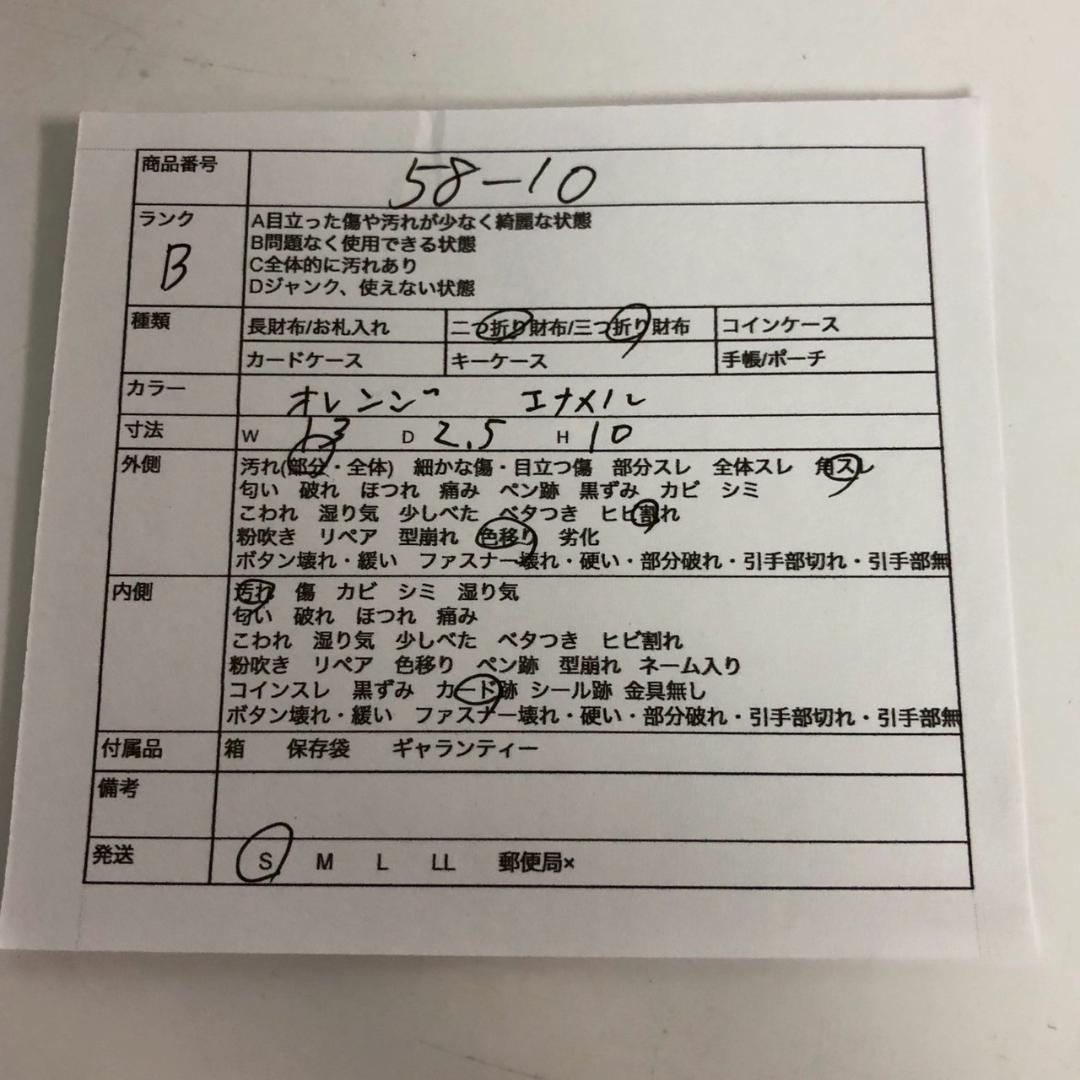 商品番号 58-10
ランク A目立った傷や汚れが少なく綺麗な状態
B B問題なく使用できる状態
C全体的に汚れあり
Dジャンク、使えない状態
種類 長財布/お札入れ 二つ折り財布/三つ折り財布 コインケース
カードケース キーケース 手帳/ポーチ
カラー オレンジ エナメル
寸法 W 13 D 2.5 H 10
外側 汚れ(部分・全体) 細かな傷・目立つ傷 部分スレ 全体スレ 角スレ
匂い 破れ ほつれ 痛み ペン跡 黒ずみ カビ シミ
こわれ 湿り気 少しべた ベタつき ヒビ割れ
粉吹き リペア 型崩れ 色移り 劣化
ボタン壊れ・緩い ファスナー壊れ・硬い・部分破れ・引手部切れ・引手部無
内側 汚れ 傷 カビ シミ 湿り気
匂い 破れ ほつれ 痛み
こわれ 湿り気 少しべた ベタつき ヒビ割れ
粉吹き リペア 色移り ペン跡 型崩れ ネーム入り
コインスレ 黒ずみ カード跡 シール跡 金具無し
ボタン壊れ・緩い ファスナー壊れ・硬い・部分破れ・引手部切れ・引手部無
付属品 箱 保存袋 ギャランティー
備考
発送 S M L LL 郵便局×